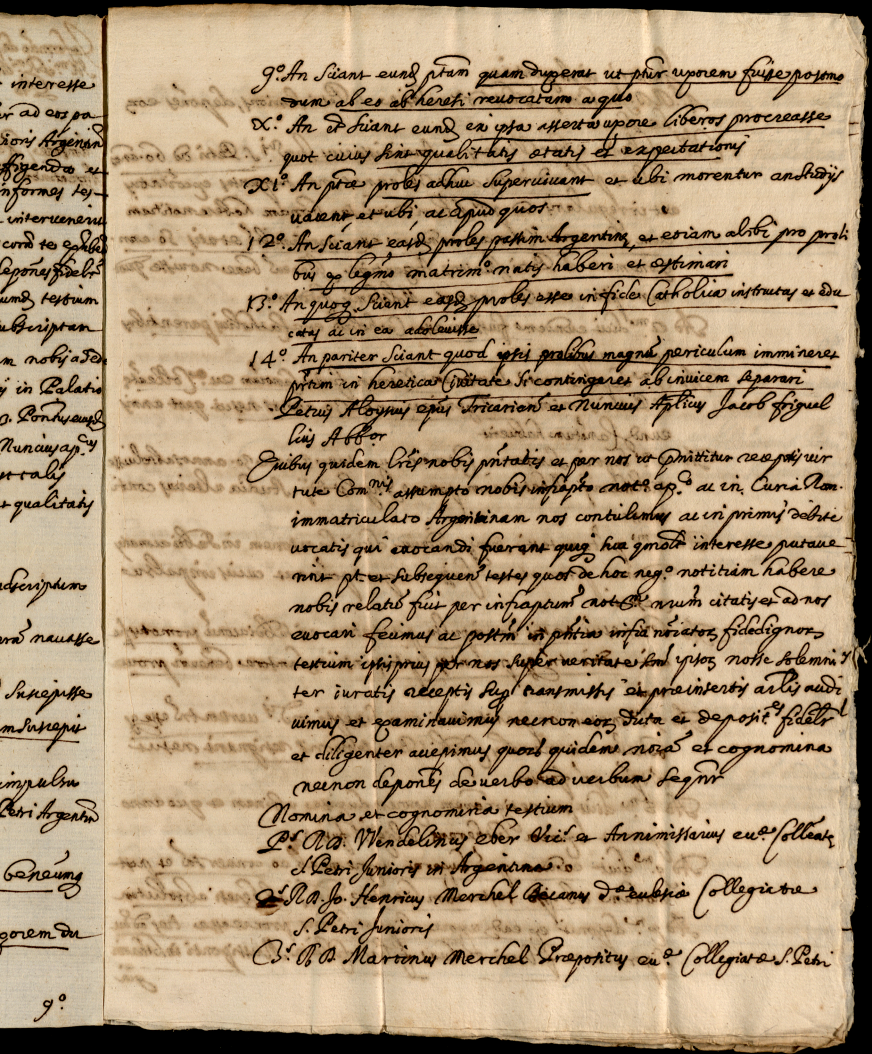 interesse
r ad eos pa
ioris Argenin
figenda et
informes tes-
intervenerit
cord te
epones fidelr
eund testium
ubscriptam
m nobis a Sede
ij in Palatio
Nuncius ap.cus
st talis
et qualitatis
dscriptum
navasse
Suscepisse
m suscepit
impulsu
Petri Argentin
beneum
xorem du
9.o
9.o An Sciant eund ptam quam duxerat ut ptur uxorem fuisse postmo
dum ab eo ab heresi revocatam a quo
X.o An et Sciant eund ex ipsa asserta uxore liberos procreasse
quot cuius sint qualitatis ætatis et expectationis
XI.o An ptæ proles adhuc supervivant et ubi morentur an studijs
vacent et ubi, ac apud quos
12.o An Sciant easd proles passim Argentinæ, et etiam alibi pro proli
bus ex legmo matrim.o natis haberi et æstimari
13.o An quoq Scient easd proles esse in fide Catholica instructas et edu
catas ac in ea adolevisse
14.o An pariter Sciant quod ipsis prolibus magnū periculum immineret
prtim in heretica Civitate si contingeret ab invicem separari
Petrus Aloysius epus Tricarien et Nuncius Aplicus Jacob frigel
lius Abbor
Quibus quidem lris nobis pntatis et per nos ut pmittitur receptis vir
tute Com.nis assumpto nobis infrapto not.o ap.o ac in Curia Rom.
immatriculato Argentinam nos contulimus ac in primis debite
vocatis qui evocandi fuerant quiq hac interesse putave
rint pt. et subsequen testes quos de hoc neg.o notitiam habere
nobis relatū fuit per infraptum not citatis et ad nos
evocari fecimus ac postm in pntia infra noiator fidedignor
testium ipsis prius per nos super veritate ipsor nosse solemni
ter iuratis receptis sup transmissis et præinsertis arlis audi
vimus et examinavimus necnon eor dicta et deposit.es fidelr
et diligenter accepimus quorū quidem noīa et cognomina
necnon depones de verbo ad verbum seqnr
Nomina et cognomina testium
P.s R.D. Wendelinus eber Vic.s et Annimissarius ecc.æ Colleate
S. Petri Junioris in Argentina
2.s R.D. Jo. Henricus Merchel Decanus d.æ ecclesiæ Collegiatæ
S. Petri Junioris
3.s R.D. Martinus Merchel Præpositus ecc.æ Collegiatæ S. Petri